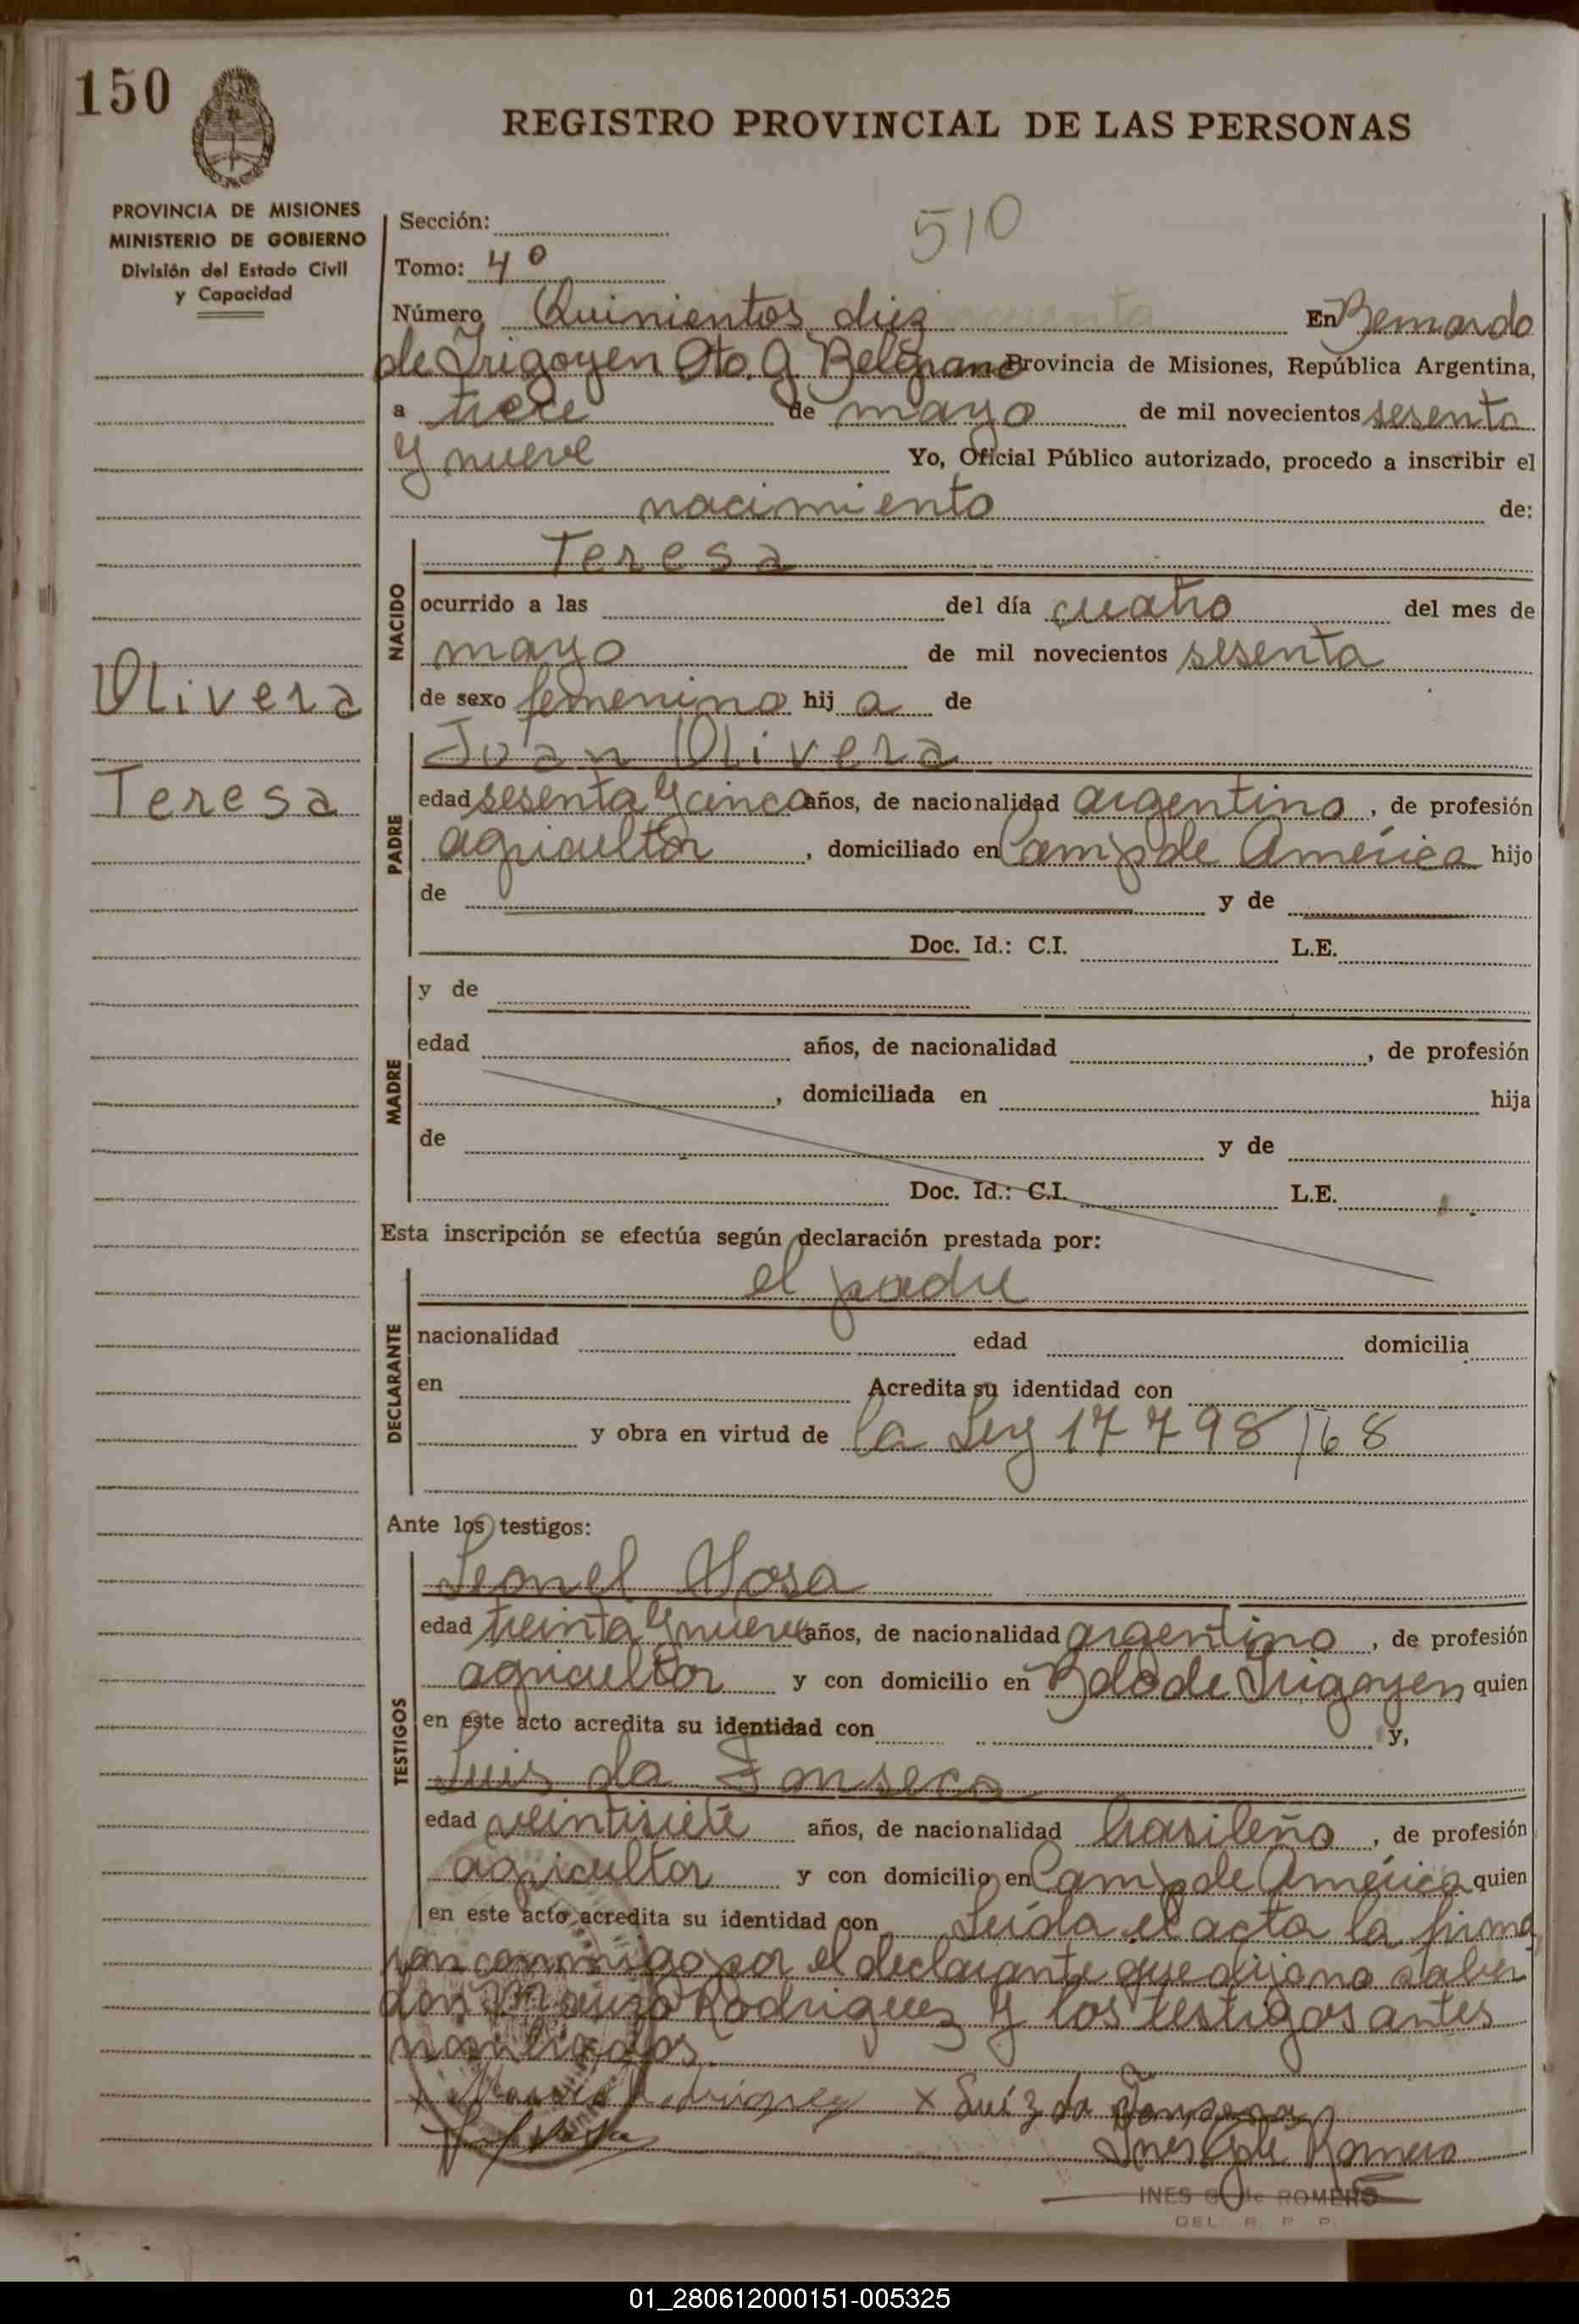 150
REGISTRO PROVINCIAL DE LAS PERSONAS
PROVINCIA DE MISIONES
MINISTERIO DE GOBIERNO
División del Estado Civil
y Capacidad
Sección:
510
Tomo: 4º
Número Quinientos diez En Bernardo
de Irigoyen Dto. G Belgrano Provincia de Misiones, República Argentina,
a trece de mayo de mil novecientos sesenta
y nueve Yo, Oficial Público autorizado, procedo a inscribir el
nacimiento de:
NACIDO
Teresa
ocurrido a las del día cuatro del mes de
mayo de mil novecientos sesenta
de sexo femenino hij a de
Olivera
Teresa
PADRE
Juan Olivera
edad sesenta y cinco años, de nacionalidad argentino, de profesión
agricultor, domiciliado en Camp de América hijo
de y de
Doc. Id.: C.I. L.E.
MADRE
y de
edad años, de nacionalidad , de profesión
, domiciliada en hija
de y de
Doc. Id.: C.I. L.E.
Esta inscripción se efectúa según declaración prestada por:
DECLARANTE
el padre
nacionalidad edad domicilia
en Acredita su identidad con
y obra en virtud de la Ley 17798/68
Ante los testigos:
TESTIGOS
Leonel Sosa
edad treinta y nueve años, de nacionalidad argentino, de profesión
agricultor y con domicilio en Bdo de Irigoyen quien
en este acto acredita su identidad con y,
Luis da Fonseca
edad veintisiete años, de nacionalidad brasileño, de profesión
agricultor y con domicilio en Camp de América quien
en este acto acredita su identidad con Leída el acta la firma
ron conmigo por el declarante que dijo no saber
don Mauro Rodriguez y los testigos antes
nombrados.
x Rodriguez x Luiz da Fonseca
Ines G de Romero
INES G de ROMERO
DEL R. P. P.
01_280612000151-005325